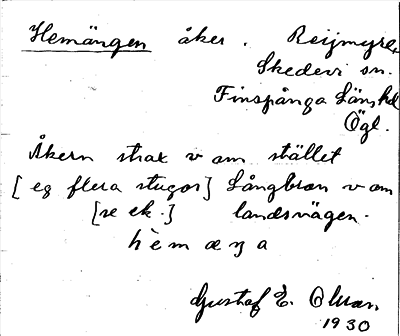 Hemängen åker. Reijmyre,
Skedevi sn.
Finspånga Läns hd
Ögl.
Åkern strax v om stället
[eg flera stugor] Långbron v om
[se ek.] landsvägen.
hèmæŋa
Gustaf E. Olsson,
1930